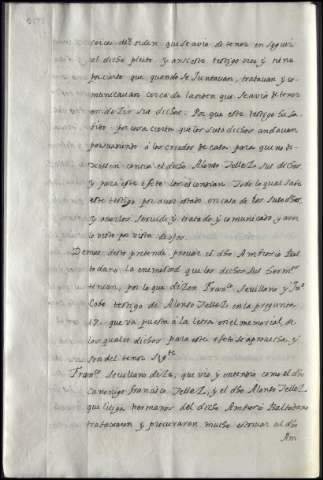 cerca del orden que se avia de tener en seguir
el dicho pleito y ansi este testigo vio y tiene
por cierto que quando se Juntavan, tratavan y co-
municavan cerca de la orden que se avia de tener
en dezir sus dichos: Por que este testigo
por cosa cierta que los suso dichos andavan
a los criados de casa, para que no di-
xessen contra el dicho Alonso Tellez sus dichos
y para este efeto los Todo lo qual sabe
este testigo por aver estado en casa de los suso dhos.
y averlos servido y tratado y comunicado, y aver
lo visto por vista de ojos.
Demas desto pretende provar el dho Antonio Bal
todano la enemistad que los dichos sus herm.os
tenian, por lo que dizen Fran.co Sevillano y Ju.o
Cobo testigos de Alonso Tellez en la pregunta
19. que va puesta a la letra en el memorial de
los quales dichos para este efeto se aprovecha, y
son del tenor sig.te
Fran.co Sevillano dize, que vio y entendio como el dho
canonigo Francisco Tellez, y el dho Alonso Tellez
que litiga hermanos del dicho Antonio Baltodano
trataron y procuraron mucho estorvar al dho
An